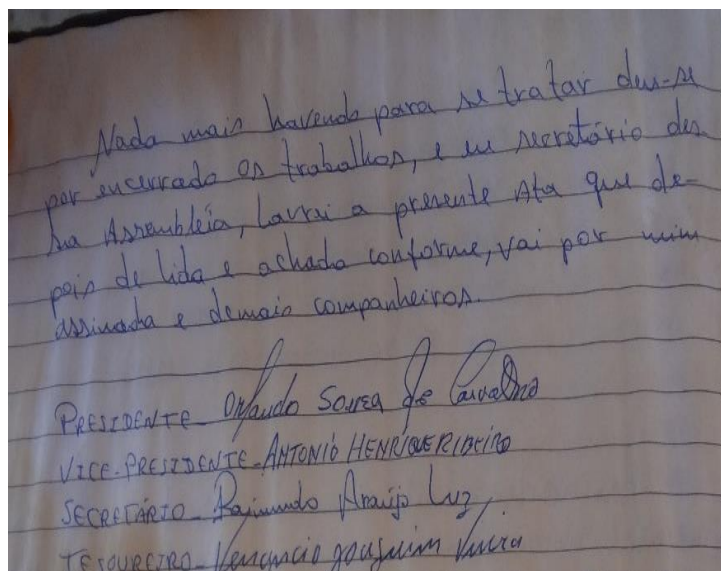 Nada mais havendo para se tratar deu-se
por encerrado os trabalhos, e eu secretário des
sa Assembléia, lavrai a presente Ata que de-
pois de lida e achada conforme, vai por mim
assinada e demais companheiros.
PRESIDENTE - Orlando Souza de Carvalho
VICE-PRESIDENTE - ANTONIO HENRIQUE RIBEIRO
SECRETÁRIO - Raimundo Araújo Luz
TESOUREIRO - Venancio Joaquim Vieira